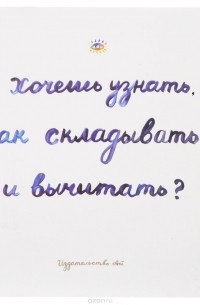 Хочешь узнать,
ак складывать
и вычитать?
Издательство